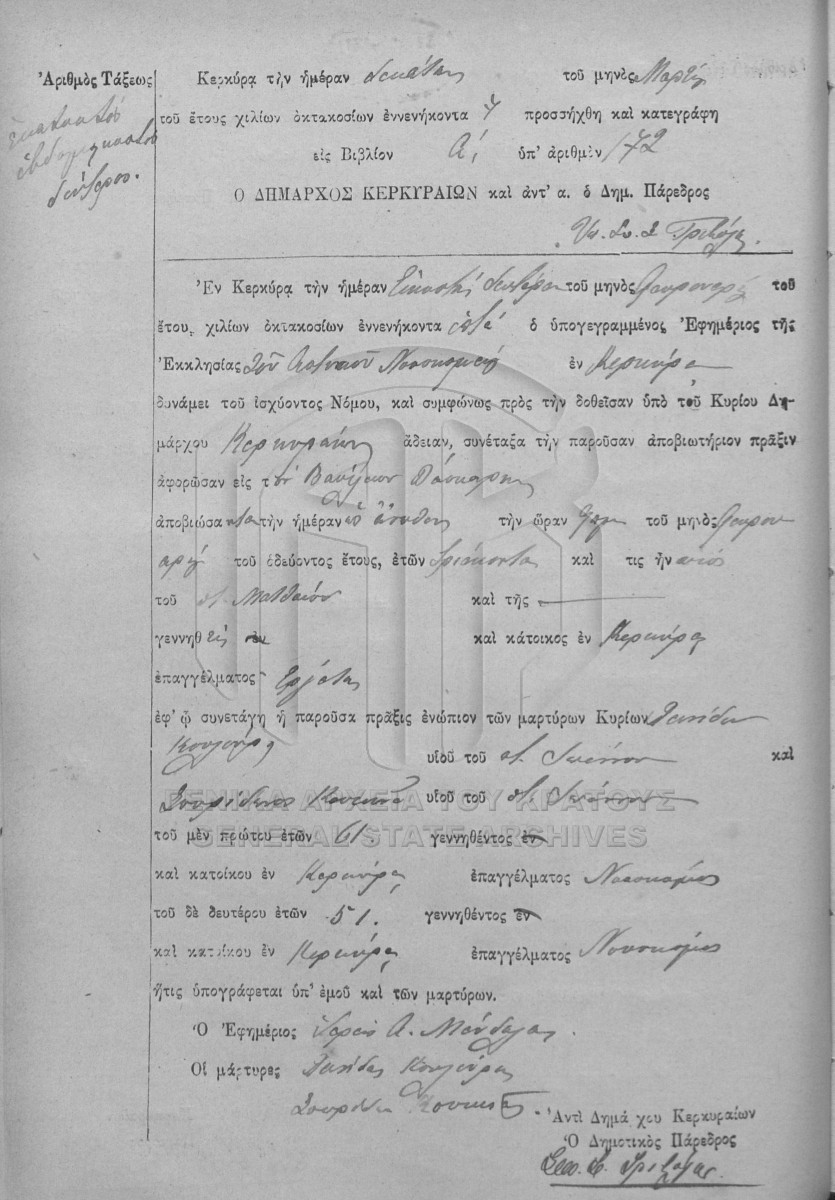 Ἀριθμὸς Τάξεως
ἑκατοστὸν
ἑβδομηκοστὸν
δεύτερον.
Κερκύρᾳ τὴν ἡμέραν δεκάτην τοῦ μηνὸς Μαρτίου
τοῦ ἔτους χιλίων ὀκτακοσίων ἐννενήκοντα 7 προσήχθη καὶ κατεγράφη
εἰς Βιβλίον Α, ὑπ' ἀριθμὸν 172
Ο ΔΗΜΑΡΧΟΣ ΚΕΡΚΥΡΑΙΩΝ καὶ ἀντ' α. ὁ Δημ. Πάρεδρος
Ἐν Κερκύρᾳ τὴν ἡμέραν Εἰκοστὴν δευτέραν τοῦ μηνὸς Φευρουαρίου τοῦ
ἔτου, χιλίων ὀκτακοσίων ἐννενήκοντα ἑπτά ὁ ὑπογεγραμμένος Ἐφημέριος τῆς
Ἐκκλησίας τοῦ Νοσοκομείου ἐν Κερκύρᾳ
δυνάμει τοῦ ἰσχύοντος Νόμου, καὶ συμφώνως πρὸς τὴν δοθεῖσαν ὑπὸ τοῦ Κυρίου Δη-
μάρχου Κερκυραίων ἄδειαν, συνέταξα τὴν παροῦσαν ἀποβιωτήριον πρᾶξιν
ἀφορῶσαν εἰς τὸν Βασίλειον
ἀποβιώσαντα τὴν ἡμέραν ὡς ἄνωθεν τὴν ὥραν τοῦ μηνὸς Φευρου
αρίου τοῦ ὁδεύοντος ἔτους, ἐτῶν τριάκοντα καὶ τις ἦν υἱὸς
τοῦ Ματθαίου καὶ τῆς
γεννηθεὶς ἐν καὶ κάτοικος ἐν Κερκύρᾳ
ἐπαγγέλματος Ἐργάτης
ἐφ' ᾧ συνετάγη ἡ παροῦσα πρᾶξις ἐνώπιον τῶν μαρτύρων Κυρίων
υἱοῦ τοῦ Ἰωάννου καὶ
Σπυρίδωνος υἱοῦ τοῦ Ἰωάννου
ΓΕΝΙΚΑ ΑΡΧΕΙΑ ΤΟΥ ΚΡΑΤΟΥΣ
GENERAL STATE ARCHIVES
τοῦ μὲν πρώτου ἐτῶν 61. γεννηθέντος ἐν
καὶ κατοίκου ἐν Κερκύρᾳ ἐπαγγέλματος Νοσοκόμος
τοῦ δὲ δευτέρου ἐτῶν 51. γεννηθέντος ἐν
καὶ κατοίκου ἐν Κερκύρᾳ ἐπαγγέλματος Νοσοκόμος
ἥτις ὑπογράφεται ὑπ' ἐμοῦ καὶ τῶν μαρτύρων.
Ὁ Ἐφημέριος Ἱερεὺς Α.
Οἱ μάρτυρες
Ἀντὶ Δημάρχου Κερκυραίων
Ὁ Δημοτικὸς Πάρεδρος